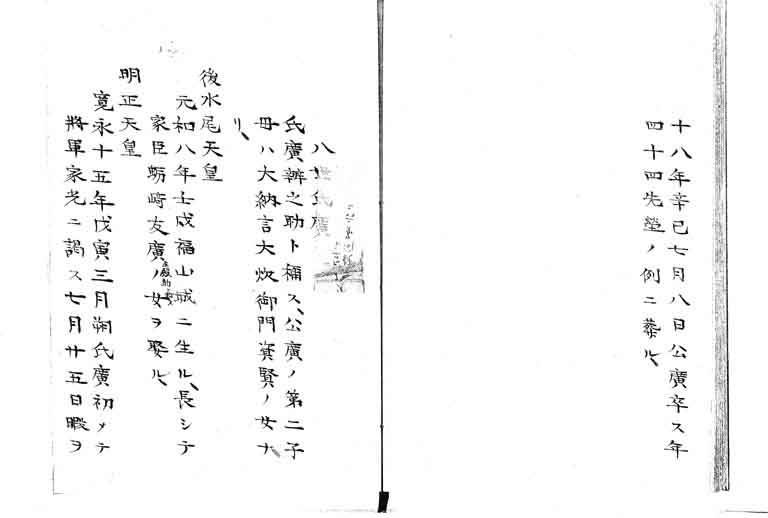 十八年辛巳七月八日公廣卒ス年
四十四先塋ノ例ニ葬ル、
八世氏廣
氏廣辨之助ト稱ス、公廣ノ第二子
母ハ大納言大炊御門資賢ノ女ナ
リ、
後水尾天皇
元和八年壬戌福山城ニ生ル、長シテ
家臣蛎崎友廣ノ女ヲ娶ル、
明正天皇
寛永十五年戊寅三月朔氏廣初メテ
將軍家光ニ謁ス七月廿五日暇ヲ